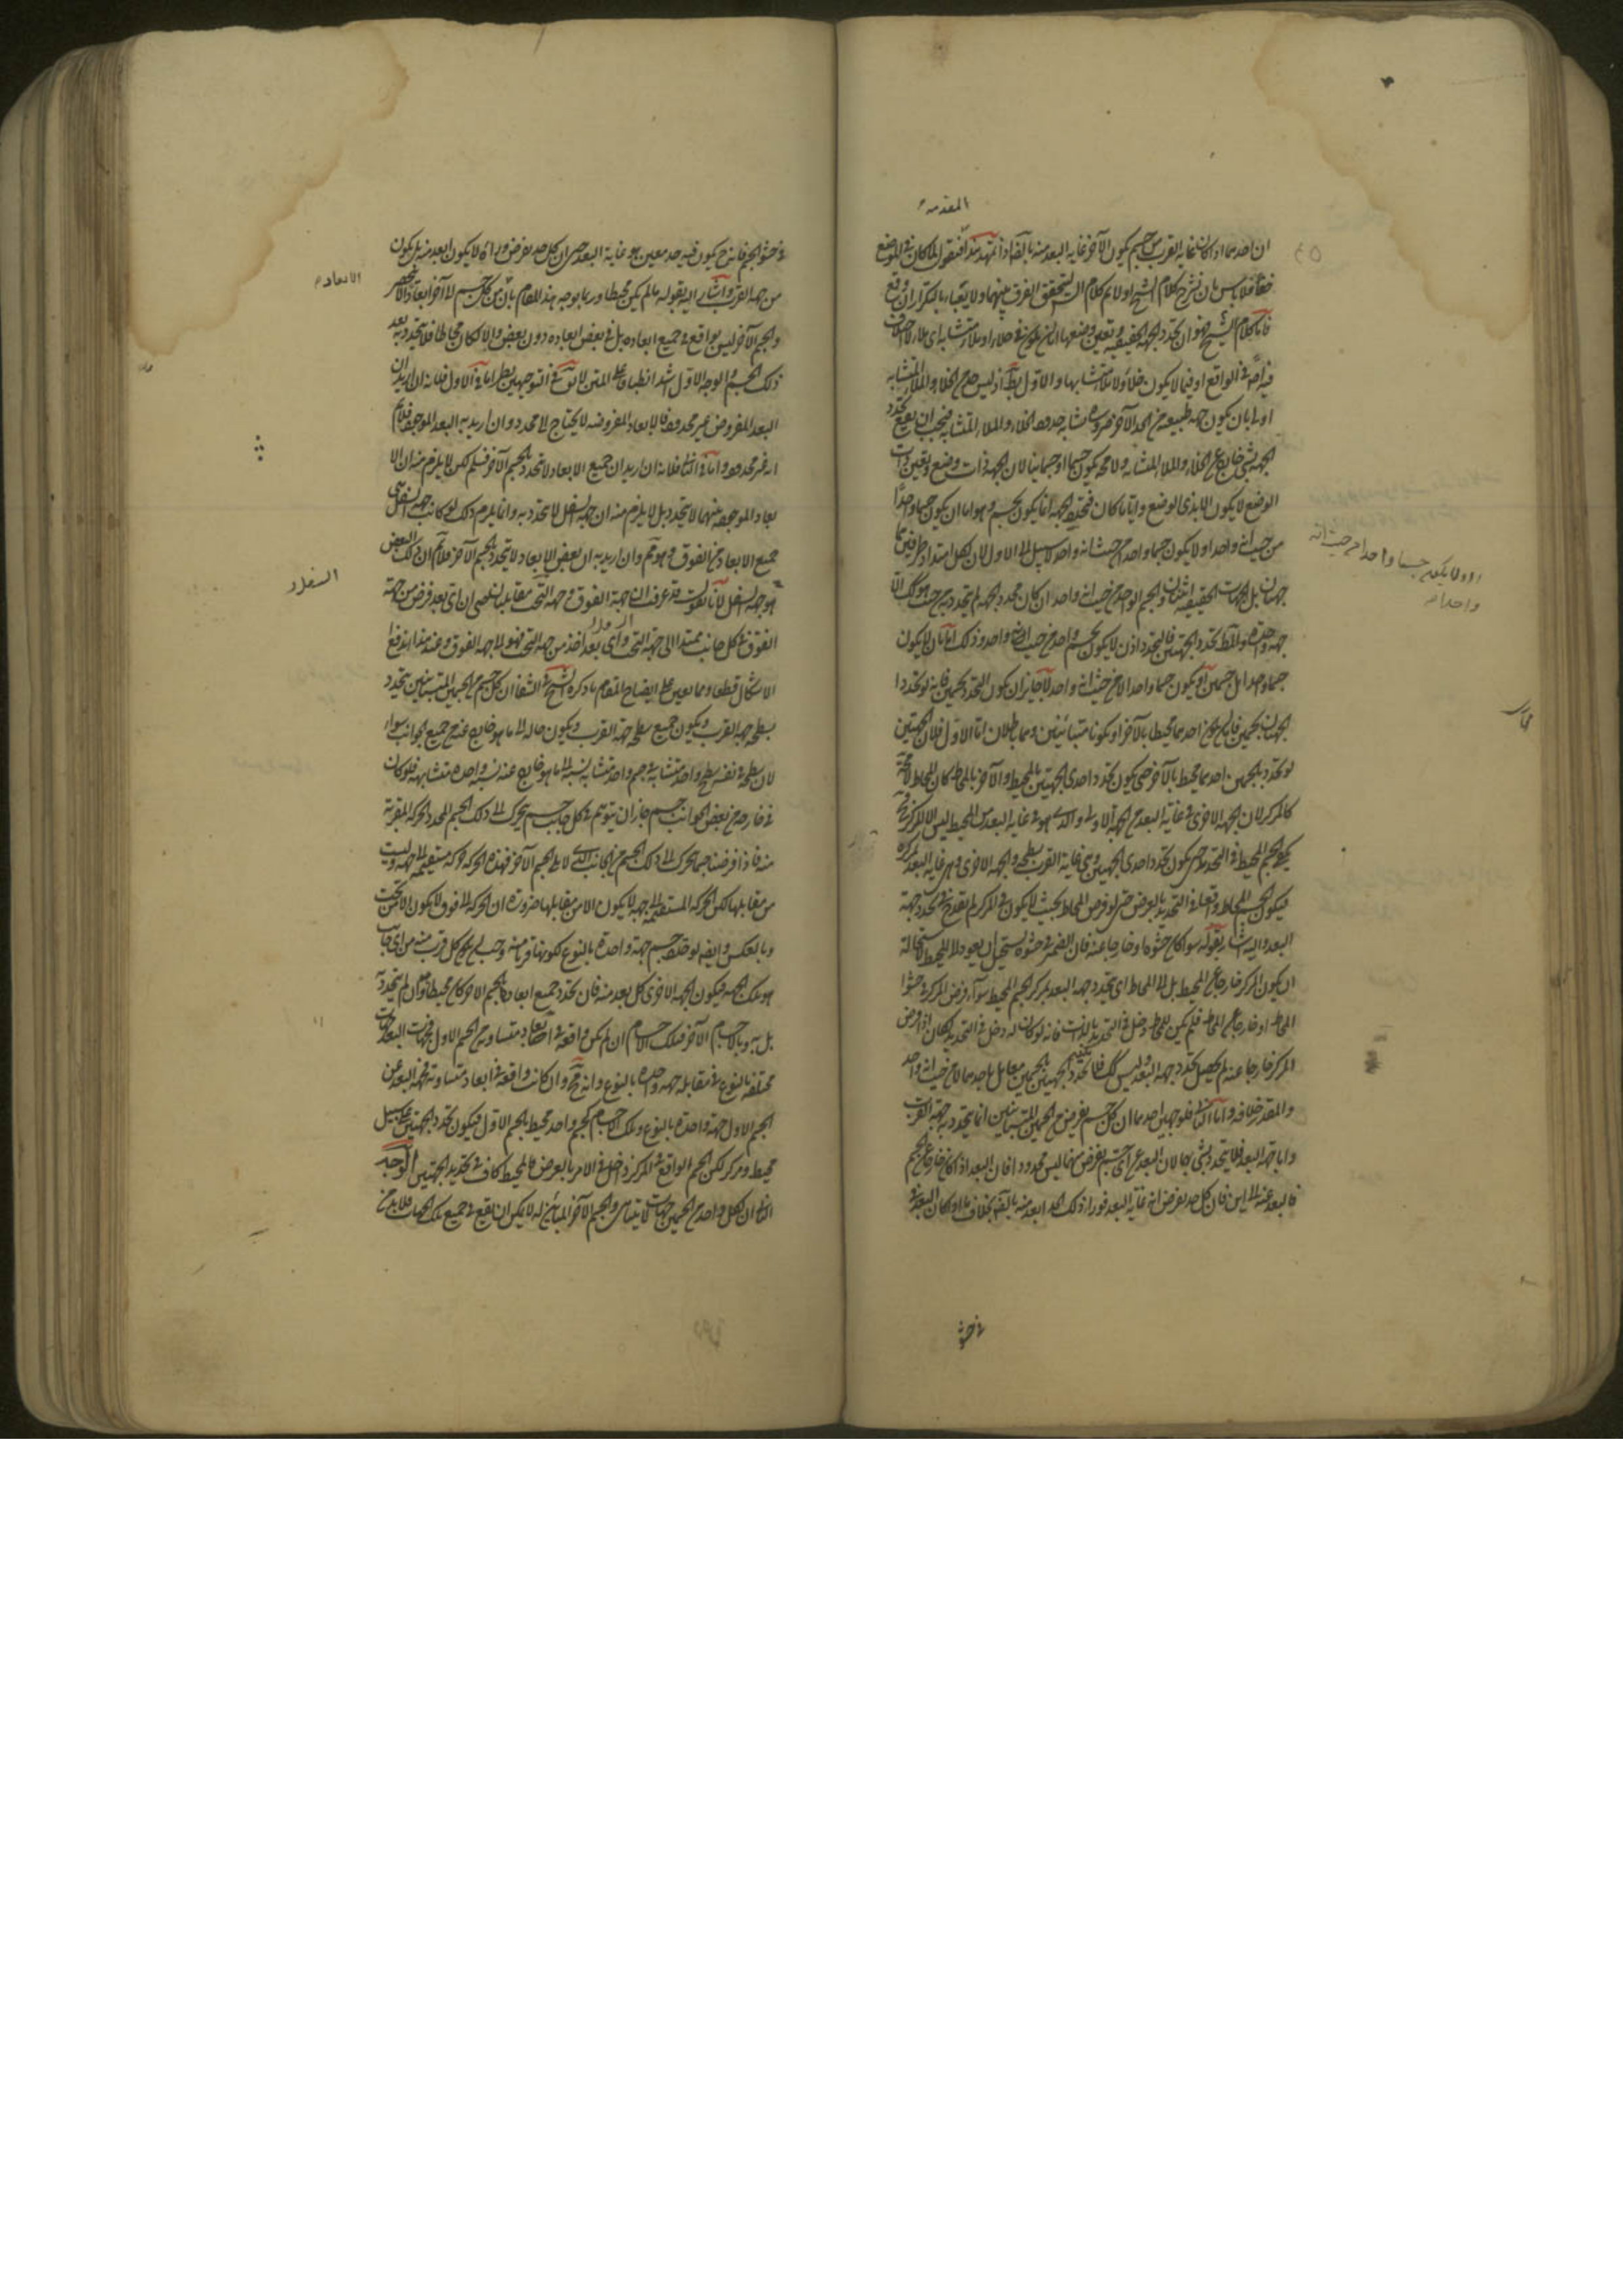 المقدمة
ان احدهما اذا كان غاية القرب من جسم يكون الآخر غاية البعد منه اذا تمهد هذا فنقول لما كان في الموضع
فلا باس بان نشرح كلام الشيخ اولا ثم كلام الشـ ليتحقق الفرق بينهما ولا يعباء بالتكرار ان وقع
فاما كلام الشيخ فهو ان تحدد الجهة الحقيقية وتعين وضعها اما ان يكون في خلاء او ملاء متشابه اى ملاء لا اختلاف
فيه اصلا في الواقع او فيما لا يكون خلاء ولا ملاء متشابها والاول بط اذ ليس حد من الخلاء والملاء المتشابه
اولى بان يكون جهة طبيعية من الحد الآخر ضرورة تشابه حدود الخلاء والملاء المتشابه فيجب ان يقع تحدد
الجهة بشئ خارج عن الخلاء والملاء المتشابه ولا محة يكون جسما او جسمانيا لان الجهة ذات وضع وتعين ذات
الوضع لا يكون الا بذى الوضع واياما كان فتحدد الجهة انما يكون بجسم وهو اما ان يكون جسما واحدا
من حيث انه واحد او لا يكون جسما واحدا من حيث انه واحد لا سبيل الى الاول لان لكل امتداد طرفين هما
جهتان بل الجهات الحقيقية اثنتان والجسم الواحد من حيث انه واحد ان كان محدد الجهة لم يتحدد به من حيث هو كك الا
جهة واحدة والمط تحدد الجهتين فالمحدد اذن لا يكون بجسم واحد من حيث انه واحد وذلك اما بان لا يكون
جسما واحدا بل جسمين او يكون جسما واحدا لا من حيث انه واحد لا جايز ان يكون التحدد بجسمين فانه لو تحددا
الجهتان بجسمين فاما ان يكون احدهما محيطا بالآخر او يكونا متباينين وهما باطلان اما الاول فلان الجهتين
لو تحددتا بجسمين احدهما محيط بالآخر حتى يكون تحدد احدى الجهتين بالمحيط والآخر بالمحاط كان المحاط لا محة
كالمركز لان الجهة الاخرى في غاية البعد من الجهة الاولى والذى هو في غاية البعد من المحيط ليس الا المركز
الجسم المحيط في التحدد حتى يكون تحدد احدى الجهتين وهي غاية القرب بسطحه والجهة الاخرى وهي غاية البعد بمركزه
فيكون الجسم المحاط واقعا في التحديد بالعرض حتى لو فرض المحاط بحيث لا يكون في المركز لم يقدح في تحدد جهة
البعد واليه اشار بقوله سواء كان حشوها وخارجا عنه فان الضمير في حشوه يستحيل ان يعود الى المحيط لاستحالة
ان يكون المركز خارجا عن المحيط بل الى المحاط اى يتحدد جهة البعد بمركز الجسم المحيط سواء فرض المركز في حشو
المحاط او خارجا عن المحاط فلم يكن للمحاط دخل في التحديد بالذات فانه لو كان له دخل في التحديد لكان اذا فرض
المركز خارجا عنه لم يحصل تحدد جهة البعد وليس كك فلا تحدد الجهتين بالجسمين معا بل باحدهما لا من حيث انه واحد
والمقدر خلافه واما الثاني فلوجهين احدهما ان كل جسم يفرض من الجسمين المتباينين انما يتحدد به جهة القرب
واما جهة البعد فلا يتحدد بشئ منهما لان البعد عن اى جسم يفرض منهما ليس محدودا فان البعد اذا كان خارجا عن الجسم
فالبعد عنه الى اين فان كل حد يفرض انه غاية البعد فوراء ذلك الحد ابعد منه بخلاف ما اذا كان البعد في
في حشو
او لا يكون جسما واحدا من حيث انه
واحد
في حشو الجسم فانه ح يكون فيه حد معين هو غاية البعد حتى ان كل حد يفرض وراءه لا يكون ابعد منه بل يكون
من جهة القرب واشار اليه بقوله ما لم يكن محيطا وربما يوجه هذا المقام بان من كل جسم الى آخر ابعادا لا تنحصر
والجسم الآخر ليس بواقع في جميع ابعاده بل في بعض ابعاده دون بعض والا لكان محاطا فلا يتحدد به بعد
ذلك الجسم والوجه الاول اشد انطباقا على المتن لا يق في التوجيهين نظر اما في الاول فلانه ان اريد ان
البعد المفروض غير محدود فالابعاد المفروضة لا يحتاج الى محدد وان اريد به البعد الموجود فلا نم
انه غير محدود واما في الثاني فلانه ان اريد ان جميع الابعاد لا تتحدد بالجسم الآخر فمسلم لكن لا يلزم منه ان الا
بعاد الموجودة منهما لا يتحدد بل لا يلزم منه ان جهة السفل لا تتحدد به وانما يلزم ذلك لو كانت جهة السفل هي
جميع الابعاد من الفوق وهو مم وان اريد به ان بعض الابعاد لا يتحدد بالجسم الآخر فلا نم ان ذلك البعض
هو جهة السفل لانا نقول قد عرفت ان جهة الفوق وجهة التحت متقابلتان بمعنى ان اى بعد فرض من جهة
الفوق في كل جانب يمتد الى جهة التحت واى بعد اخذ من جهة التحت فهو الى جهة الفوق وعند هذا اندفع
الاشكال قطعا ومما يعين على ايضاح المقام ما ذكره الشيخ في الشفا ان كل جسم من الجسمين المتباينين تتحدد
بسطحه جهة القرب ويكون جميع سطحه جهة القرب ويكون حاله الى ما هو خارج عنه من جميع الجوانب سواء
لان سطحه في نفسه سطح واحد متشابه من جسم واحد متشابه نسبته الى ما هو خارج عنه نسبة واحدة متشابهة فلو كان
في خارجه من بعض الجوانب جسم جاز ان يتوهم في كل جانب جسم يتحرك الى ذلك الجسم المحدد الحركة المقربة
منه فاذا فرضنا جسما تحرك الى ذلك الجسم من الجانب الذى لا يلى الجسم الآخر فهذه الحركة حركة مستقيمة الى جهة وليست
من مقابلها لكن الحركة المستقيمة الى جهة لا يكون الا من مقابلها ضرورة ان الحركة الى فوق لا يكون الا من تحت
وبالعكس وايضا لو حدد جسم جهة واحدة بالنوع ككونها قربا منه وجب ان يكون كل قرب منه من اى جانب
هو تلك الجهة فيكون الجهة الاخرى كل بعد منه فان تحدد جميع ابعاده بالجسم الآخر كان محيطا وان لم يتحدد به
بل به وبالاجسام الآخر فتلك الاجسام ان لم يكن واقعة في ابعاد متساوية من الجسم الاول فجهات البعد جهات
مختلفة بالنوع في مقابلة جهة واحدة بالنوع وانه مح وان كانت واقعة في ابعاد متساوية فجهة البعد عن
الجسم الاول جهة واحدة بالنوع وتلك الاجسام كجسم واحد محيط بالجسم الاول فيكون تحدد الجهتين على سبيل
محيط ومركز لكن الجسم الواقع في المركز دخل في الامر بالعرض فالمحيط كاف في تحديد الجهتين الوجه
الثانى ان لكل واحد من الجسمين جهات لا تتناهى والجسم الآخر المباين له لا يمكن ان يقع في جميع تلك الجهات فلا بد من
الابعاد